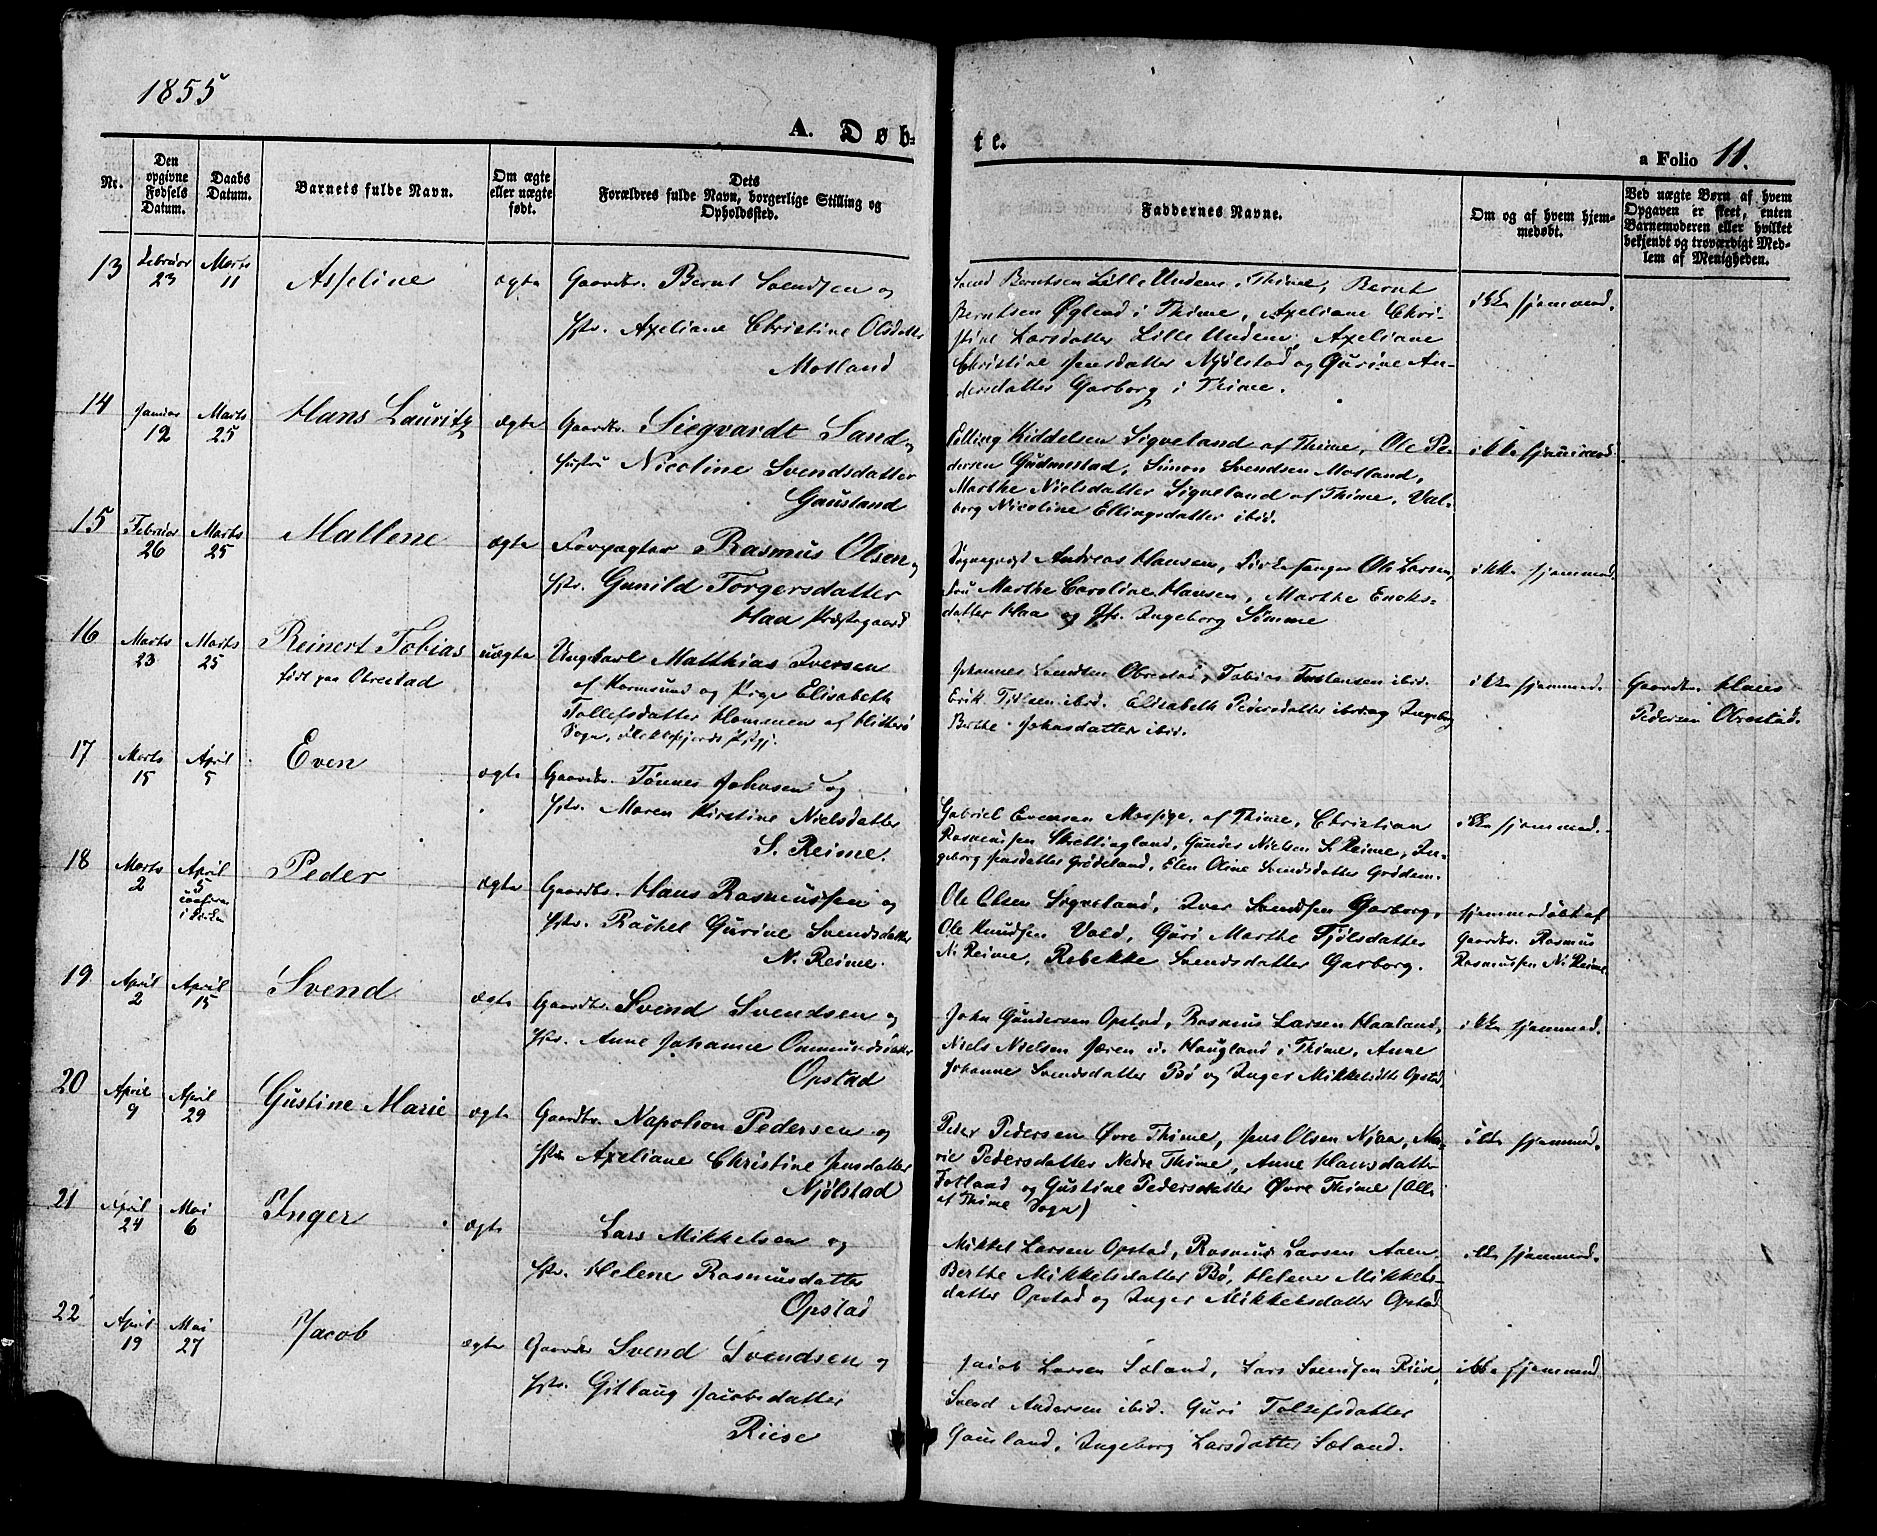 1855
A. Døb-
te.
a Folio 11.
Nr.
Den opgivne Fødsels Datum.
Daabs Datum.
Barnets fulde Navn.
Om ægte eller uægte født.
Dets
Forældres fulde Navn, borgerlige Stilling og
Opholdssted.
Faddernes Navne.
Om og af hvem hjem-
medøbt.
Ved uægte Børn af hvem
Opgaven er skeet, enten
Barnemoderen eller hvilket
bekjendt og troværdigt Med-
lem af Menigheden.
13 Februar 23 Marts 11 Asseline ægte Gaardbr. Bernt Svendsen og
Hstr. Axeliane Christine Olsdatter
Motland
Svend Berntsen Lille Undem, Thime, Bernt
Berntsen Øglend i Thime, Axeliane Chri-
stine Larsdatter Lille Undem, Axeliane
Christine Jensdatter Njølstad og Gurine An-
dersdatter Garborg i Thime.
ikke hjemmed.
14 Januar 12 Marts 25 Hans Lauritz ægte Gaardbr. Siegvardt Sand og
Hustru Nicoline Svendsdatter
Gausland
Elling Kiddelsen Sigveland af Thime, Ole Pe-
dersen Gudmestad, Simon Svendsen Motland,
Marthe Nielsdatter Sigveland af Thime, Val-
borg Nicoline Ellingsdatter ibid.
ikke hjemmed.
15 Februar 26 Marts 25 Mallene ægte Forpagter Rasmus Olsen og
Hstr. Gunild Torgersdatter
Haa Præstegaard
Sognepræst Andreas Hansen, Kirkesanger Ole Larsen,
Fru Marthe Caroline Hansen, Marthe Eneks-
datter Haa og Jfr. Ingeborg Sömme
ikke hjemmed.
16 Marts 23 Marts 25 Reinert Tobias
født paa Obrestad
uægte Ungkarl Matthias Iversen
af Karmsund og Pige Elisabeth
Tollefsdatter Hommen af Hitterø
Sogn, Flekkefjords Pstgj.
Johannes Svendsen Obrestad, Tobias Torstensen ibid.
Erik Tjölsen ibid. Elisabeth Pedersdatter ibid og Ingeborg
Berthe Johnsdatter ibid.
ikke hjemmed.
Gaardbr. Hans
Pedersen Obrestad.
17 Marts 15 April 5 Even ægte Gaardbr. Tönnes Johnsen og
Hstr. Maren Kirstine Nielsdatter
S. Reime.
Gabriel Evensen Mossige, af Thime, Christian
Rasmussen Skrettingland, Gunder Nielsen S. Reime, In-
geborg Jensdatter Grödeland, Elen Oline Svendsdatter Grödem.
ikke hjemmed.
18 Marts 2 April 5
i Kirken
Peder ægte Gaardbr. Hans Rasmussen og
Hstr. Rachel Gurine Svendsdatter
N. Reime.
Ole Olsen Sigveland, Iver Svendsen Garborg,
Ole Knudsen Vold, Guri Marthe Tjölsdatter
N. Reime, Rebekke Svendsdatter Garborg.
hjemmedøbt af
Gaardbr. Rasmus
Rasmussen N. Reime
19 April 2 April 15 Svend ægte Gaardbr. Svend Svendsen og
Hstr. Anne Johanne Ommundsdatter
Opstad
John Gundersen Opstad, Rasmus Larsen Haaland,
Niels Nielsen Jæren u. Haugland i Thime, Anne
Johanne Svendsdatter Bö og Inger Mikkelsdtr Opstad.
ikke hjemmed.
20 April 9 April 29 Gustine Marie ægte Gaardbr. Napoleon Pedersen og
Hstr Axeliane Christine Jensdatter
Njölstad
Peder Pedersen Övre Thime, Jens Olsen Njaa, Ma-
rie Pedersdatter Nedre Thime, Anne Hansdatter
Fotland og Gustine Pedersdatter Övre Thime (Alle
af Thime Sogn)
ikke hjemmed.
21 April 24 Mai 6 Inger ægte Lars Mikkelsen og
Hstr. Helene Rasmusdatter
Opstad
Mikkel Larsen Opstad, Rasmus Larsen Aaen,
Berthe Mikkelsdatter Bö, Helene Mikkels-
datter Opstad og Inger Mikkelsdatter Opstad
ikke hjemmed.
22 April 19 Mai 27 Jacob ægte Gaardbr Svend Svendsen og
Hstr. Gitlaug Jacobsdatter
Riise
Jacob Larsen Soland, Lars Svendsen Riise,
Svend Andersen ibid. Guri Tollefsdatter
Gausland, Ingeborg Larsdatter Soland.
ikke hjemmed